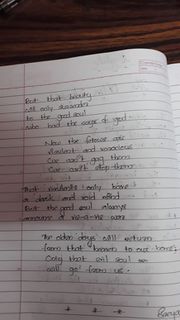 But that beauty
will only surrender
to the good soul
who had the cage of god.
Now the forces are
violent and voracious
Can can't gag them
Can can't stop them
That only have
a dark and void mind
But the good soul always
vis-a-vis wars
The olden days will return
from that branch to our home
Only that evil soul
will go from us.